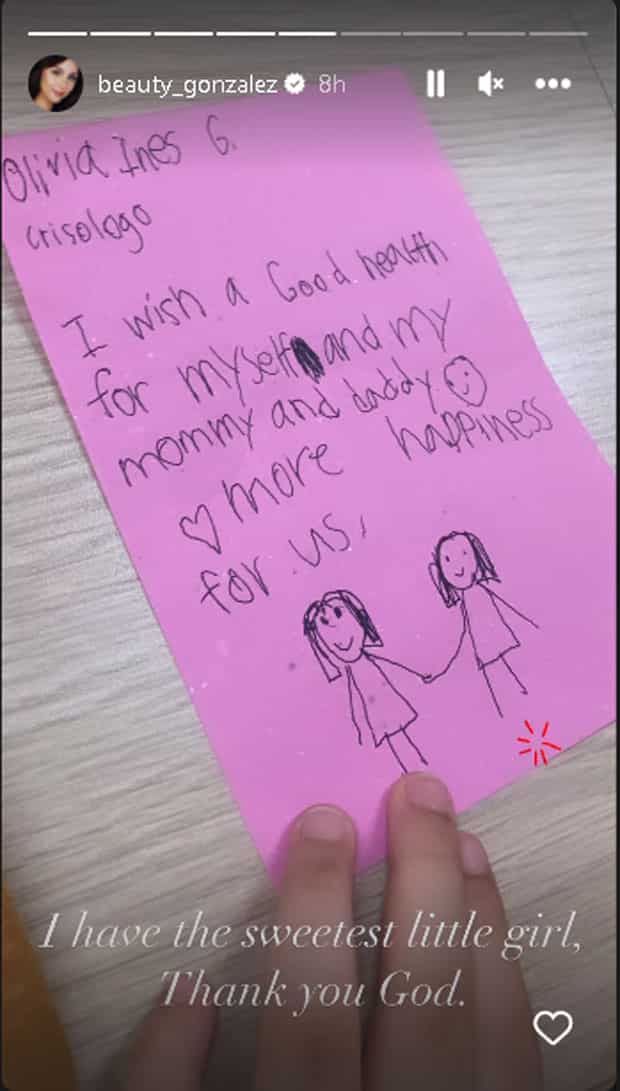 beauty_gonzalez 8h
Olivia Ines G.
crisologo
I wish a Good health
for myself and my
mommy and daddy
more happiness
for us,
I have the sweetest little girl,
Thank you God.